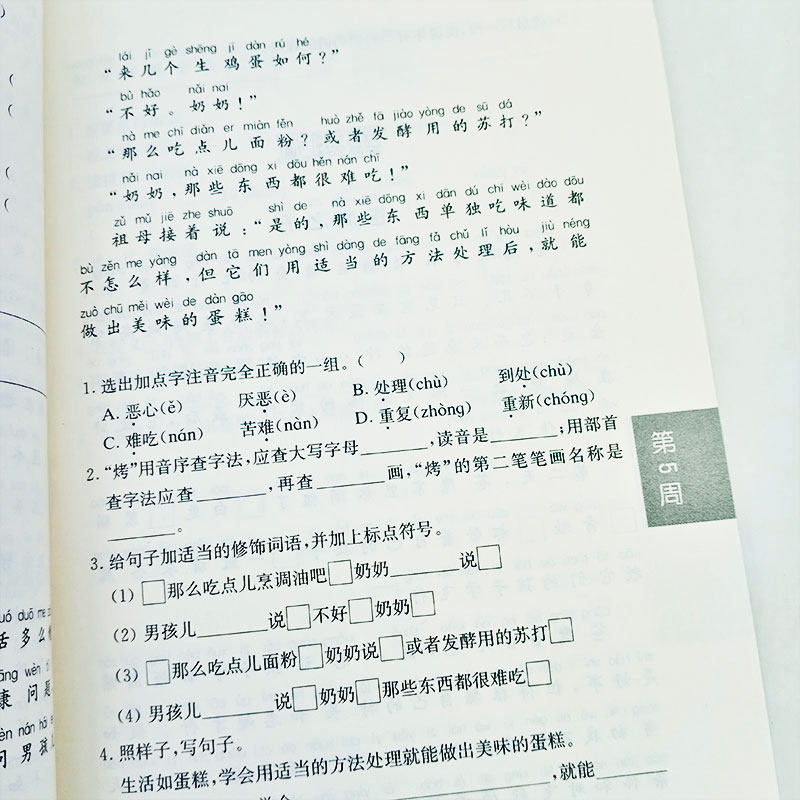 lái jǐ gè shēng jī dàn rú hé
“来几个生鸡蛋如何？”
bù hǎo nǎi nai
“不好。奶奶！”
nà me chī diǎn er miàn fěn huò zhě fā jiào yòng de sū dá
“那么吃点儿面粉？或者发酵用的苏打？”
nǎi nai nà xiē dōng xi dōu hěn nán chī
“奶奶，那些东西都很难吃！”
zǔ mǔ jiē zhe shuō shì de nà xiē dōng xi dān dú chī wèi dào dōu
祖母接着说：“是的，那些东西单独吃味道都
bù zěn me yàng dàn tā men yòng shì dàng de fāng fǎ chǔ lǐ hòu jiù néng
不怎么样，但它们用适当的方法处理后，就能
zuò chū měi wèi de dàn gāo
做出美味的蛋糕！”
1. 选出加点字注音完全正确的一组。（ ）
A. 恶心(ě) 厌恶(è) B. 处理(chù) 到处(chù)
C. 难吃(nán) 苦难(nàn) D. 重复(zhòng) 重新(chóng)
2. “烤”用音序查字法，应查大写字母______，读音是______；用部首
查字法应查______，再查______画，“烤”的第二笔笔画名称是
______。
3. 给句子加适当的修饰词语，并加上标点符号。
(1) □那么吃点儿烹调油吧□奶奶______说□
(2) 男孩儿______说□不好□奶奶□
(3) □那么吃点儿面粉□奶奶说□或者发酵用的苏打□
(4) 男孩儿______说□奶奶□那些东西都很难吃□
4. 照样子，写句子。
生活如蛋糕，学会用适当的方法处理就能做出美味的蛋糕。
______，就能______
第5周